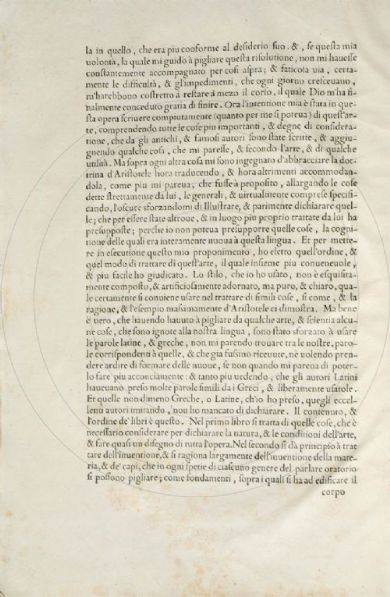 la in quello, che era piu conforme al desiderio suo. &, se questa mia
uolontà, la quale mi guidò à pigliare questa risolutione, non mi hauesse
constantemente accompagnato per così aspra; & faticosa uia, certa-
mente le difficultà, & gl'impedimenti, che ogni giorno cresceuano,
m'harebbono costretto à restare à mezo il corso, il quale Dio m'ha fi-
nalmente conceduto gratia di finire. Ora l'intentione mia è stata in que-
sta opera scriuere compiutamente (quanto per me si potea) di quest'ar-
te, comprendendo tutte le cose piu importanti, & degne di considera-
tione, che da gli antichi, & famosi autori sono state scritte, & aggiu-
gnendo qualche cosa, che mi paresse, & secondo l'arte, & di qualche
utilità. Ma sopra ogni altra cosa mi sono ingegnato d'abbracciare la doc-
trina d'Aristotele hora traducendo, & hora altrimenti accommodan-
dola, come piu mi pareua; che fusse à proposito, allargando le cose
dette strettamente da lui, le generali, & uirtualmente comprese specifi-
cando, l'oscure sforzandomi di Illustrare, & parimente dichiarare quel-
le; che per essere state altroue, & in luogo piu proprio trattate da lui ha
presupposte; perche io non poteua presupporre quelle cose, la cogni-
tione delle quali era interamente nuoua à questa lingua. Et per mette-
re in esecutione questo mio proponimento, ho eletto quell'ordine, &
quel modo di trattare di quest'arte, il quale insieme piu conueneuole,
& piu facile ho giudicato. Lo stilo, che io ho usato, non è esquisita-
mente composto, & artificiosamente adornato, ma puro, & chiaro, qua-
le certamente si conuiene usare nel trattare di simili cose, si come, & la
ragione, & l'esempio massimamente d'Aristotele ci dimostra. Ma bene
è uero, che hauendo hauuto à pigliare da qualche arte, & scientia alcu-
ne cose, che sono ignote alla nostra lingua, sono stato sforzato à usare
le parole latine, & greche, non mi parendo trouare tra le nostre, paro-
le corrispondenti à quelle, & che già fussino riceuute, nè uolendo pren-
dere ardire di formare delle nuoue, se non quando mi parea di poter-
lo fare piu acconciamente: & tanto piu uedendo; che gli autori Latini
haueuano preso molte parole simili da i Greci, & liberamente usatole.
Et quelle non dimeno Greche, o Latine, ch'io ho preso, quegli eccel-
lenti autori imitando, non ho mancato di dichiarare. Il contenuto, &
l'ordine de' libri è questo. Nel primo libro si tratta di quelle cose, che è
necessario considerare per dichiarare la natura, & le conditioni dell'arte,
& fare quasi un disegno di tutta l'opera. Nel secondo si dà principio à trat
tare dell'inuentione, & si ragiona largamente dell'inuentione della mate-
ria, & de' capi, che in ogni spetie di ciascuno genere del parlare oratorio
si possono pigliare; come fondamenti, sopra i quali si ha ad edificare il
corpo